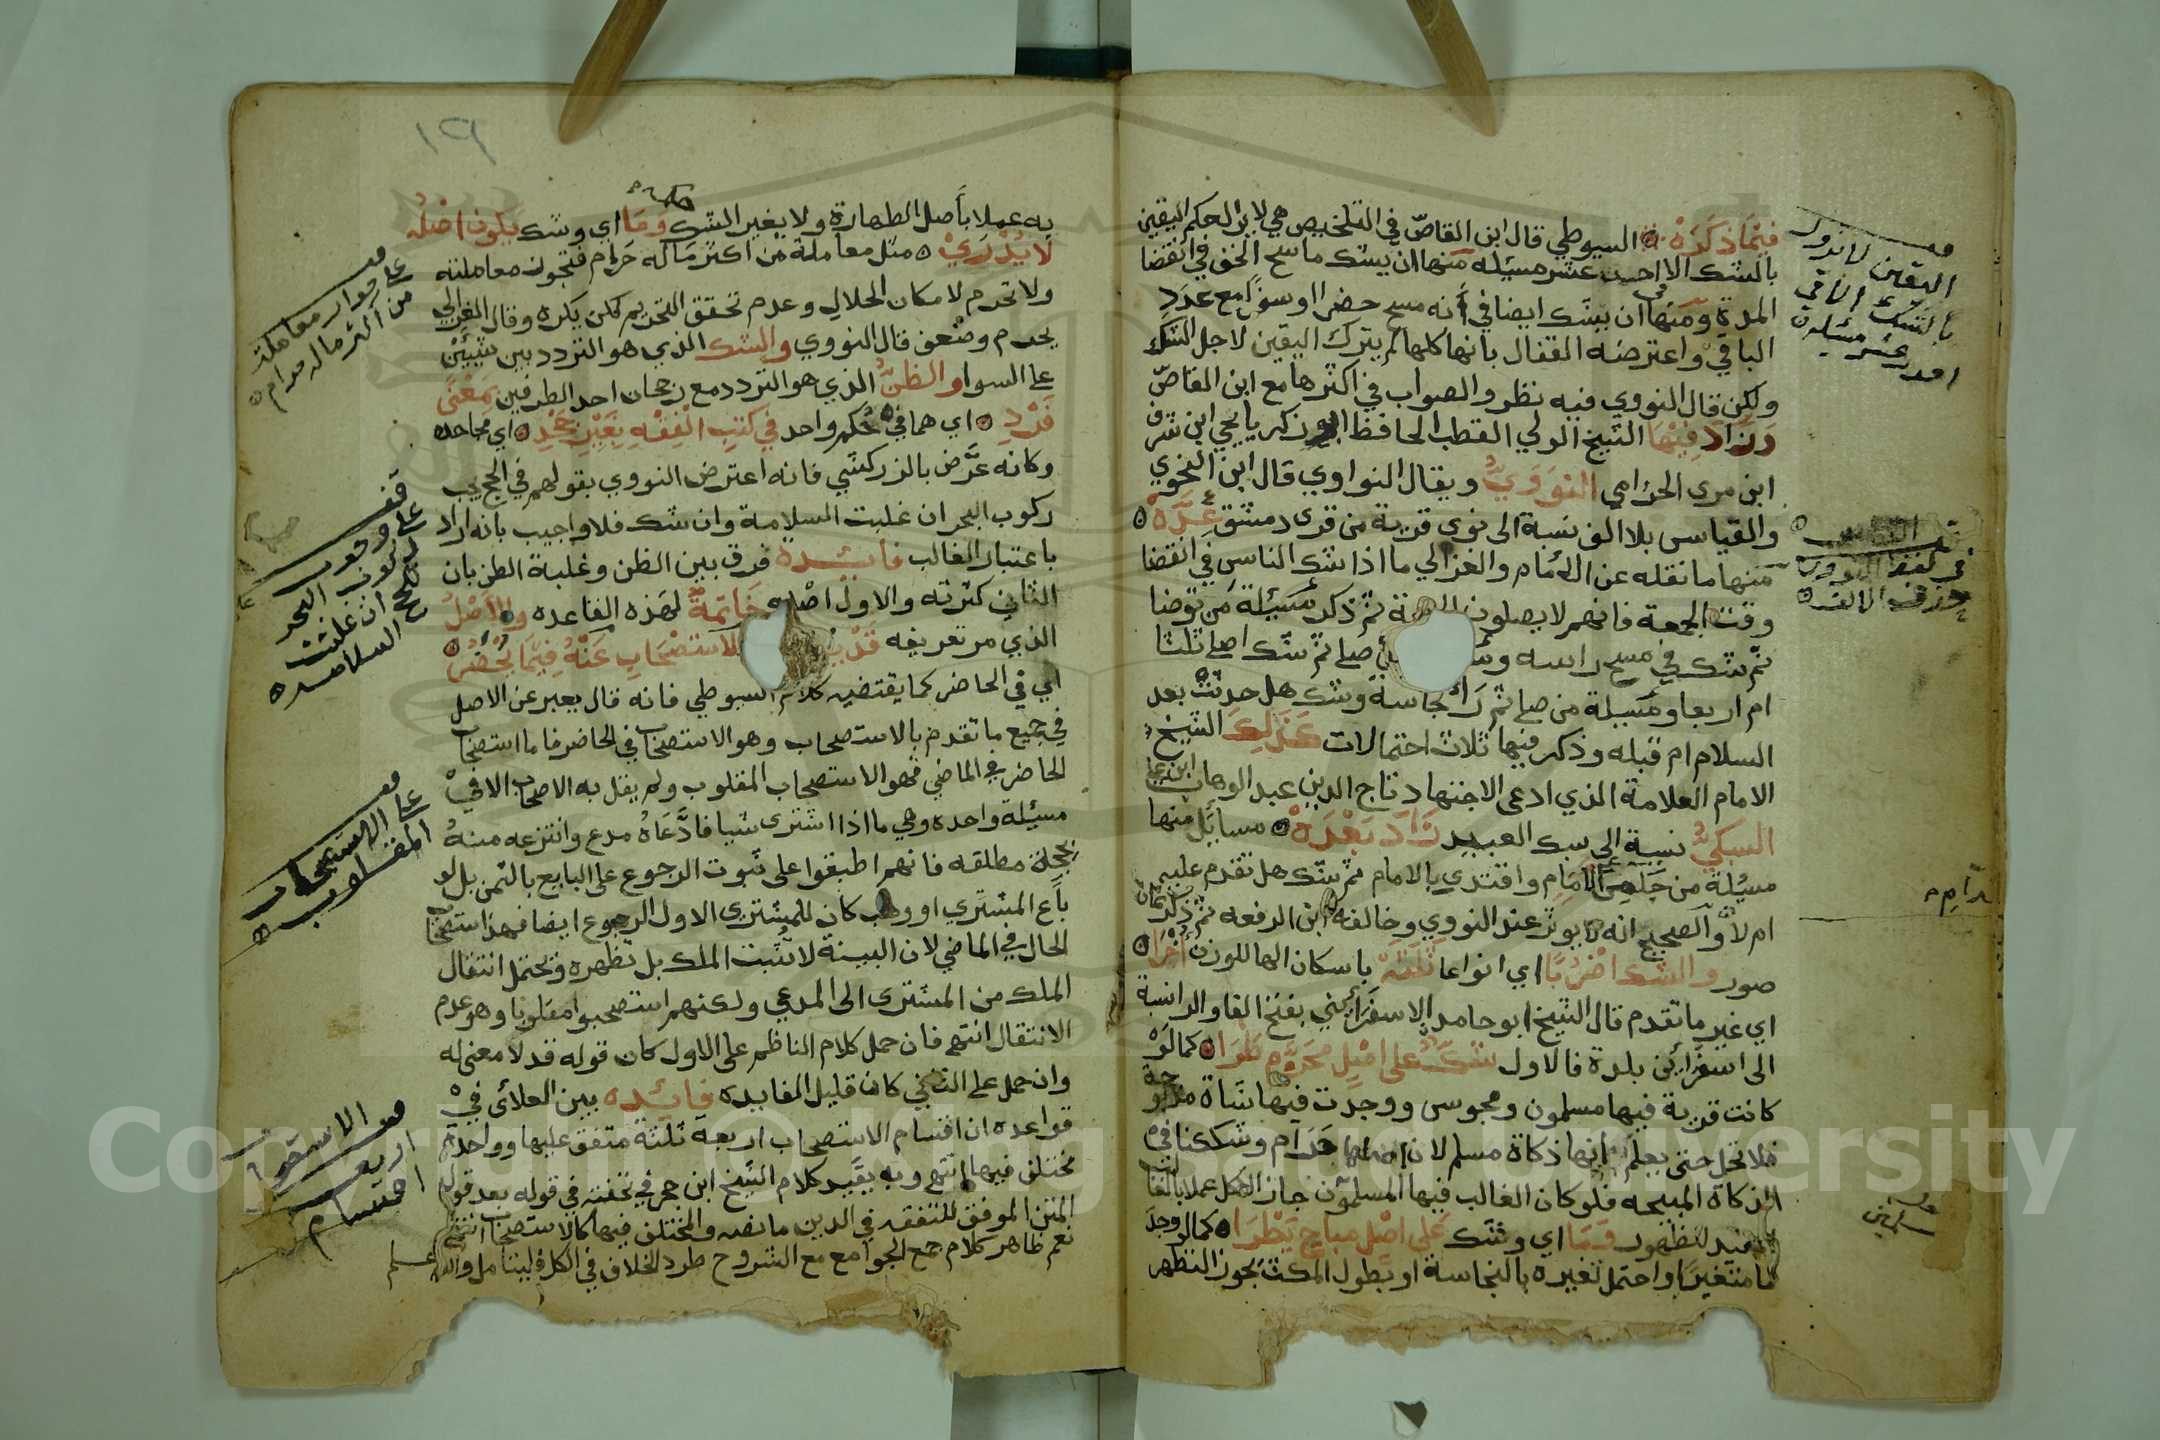 فيما ذكره السيوطي قال ابن القاص في التلخيص هي لا يزل حكم اليقين
بالشك الا احدى عشر مسئله منها ان يشك ماسح الخف في انقضا
المدة ومنها ان يشك ايضا في انه مسح حضرا او سفرا مع عدد
الباقي واعترضه القفال بانها كلها لم يترك اليقين لاجل الشك
ولكن قال النووي فيه نظر والصواب في اكثرها مع ابن القاص
وزاد فيها الشيخ الولي القطب الحافظ ابو زكريا يحيى ابن شرف
ابن مرى الحزامي النووي ويقال النواوي قال ابن النحوي
والقياس بلا الف نسبة الى نوى قرية من قرى دمشق عدة
منها ما نقله عن الامام والغزالي ما اذا شك الناس في انقضا
وقت الجمعة فانهم لا يصلون ثم ذكر مسئلة من توضا
ثم شك في مسح راسه صلى ثم شك اصلى ثلثا
ام اربعا ومسئلة من صلى ثم راى نجاسة وشك هل حدثت بعد
السلام ام قبله وذكر فيها ثلاث احتمالات كذلك الشيخ
الامام العلامة الذي ادعى الاجتهاد تاج الدين عبد الوهاب ابن علي
السبكي نسبة الى سبك العبيد زاد بعده مسايل منها
مسئلة من جا الامام واقتدي بالامام ثم شك هل تقدم عليه
ام لا والصحيح انه لا يوثر عند النووي وخالفه ابن الرفعه ثم ذكر ثمان
صور والشك اضربا اي انواعا ثلثه باسكان الها للوزن اخرا
اي غير ما تقدم قال الشيخ ابو حامد الاسفرايني بفتح الفا والرا نسبة
الى اسفراين بلدة فالاول شك على اصل محرم طرا كما لو
كانت قرية فيها مسلمون ومجوس ووجدت فيها شاة مذبوحة
فلا تحل حتى يعلم انها ذكاة مسلم لان اصلها حرام وشككنا في
الذكاة المبيحه فلو كان الغالب فيها المسلمون جاز الاكل عملا بالغالب
المفيد للظهور وما اي وشك على اصل مباح يطرا كما لو وجد
ما متغيرا واحتمل تغيره بالنجاسة او بطول المكث يجوز التطهر
قف
اليقين لا يزول
بالشك الا في
احد عشر مسئلة
قف
حذف الالف
١٢٩
به عملا باصل الطهارة ولا يغير الشك حكمه وما اي وشك يكون اصله
لا يدري مثل معاملة من اكثر ماله حرام فتجوز معاملته
ولا تحرم لامكان الحلال وعدم تحقق التحريم لكن يكره وقال الغزالي
يحرم وضعف قال النووي والشك الذي هو التردد بين شيئين
على السوا والظن الذي هو التردد مع رجحان احد الطرفين بمعنى
فرد اي هما في حكم واحد في كتب الفقه بغير جحد اي مجاحده
وكانه عرض بالزركشي فانه اعترض النووي بقولهم في الحج يجب
ركوب البحر ان غلبت السلامة وان شك فلا واجيب بانه اراد
باعتبار الغالب فايده فرق بين الظن وغلبة الظن بان
الثاني كثرته والاول اصله خاتمة لهذه القاعده والاصل
الذي مر تعريفه قد الاستصحاب عنه فيما يحضر
اي في الحاضر كما يقتضيه كلام السيوطي فانه قال يعبر عن الاصل
في جميع ما تقدم بالاستصحاب وهو الاستصحاب في الحاضر فاما استصحاب
الحاضر في الماضي فهو الاستصحاب المقلوب ولم يقل به الاصحاب الا في
مسئلة واحده وهي ما اذا اشترى شيا فادعاه مدع وانتزعه منه
بحجة مطلقه فانهم اطبقوا على ثبوت الرجوع على البايع بالثمن بل لو
باع المشتري او وهب كان للمشتري الاول الرجوع ايضا فهذا استصحاب
الحال في الماضي لان البينة لا تثبت الملك بل تظهره ويحتمل انتقال
الملك من المشترى الى المدعي ولكنهم استصحبوا مقلوبا وهو عدم
الانتقال انتهى فان حمل كلام الناظم على الاول كان قوله قد لا معنى له
وان حمل على الثاني كان قليل الفايده فايده بين العلائي في
قواعده ان اقسام الاستصحاب اربعة ثلثة متفق عليها وواحد
مختلف فيها انتهى وبه يقيد كلام الشيخ ابن حجر في تحفته في قوله بعد قول
المتن الموفق للتفقه في الدين ما نصه والمختلف فيها كالاستصحاب انتهى
نعم ظاهر كلام جمع الجوامع مع الشروح طرد الخلاف في الكل فليتامل والله اعلم
قف
على جواز معاملة
من اكثر ماله حرام
قف
على وجوب
ركوب البحر
للحج ان غلبت
السلامه
قف
على الاستصحاب
المقلوب
قف الاستصحاب
اربعة
اقسام
Copyright © King Saud University